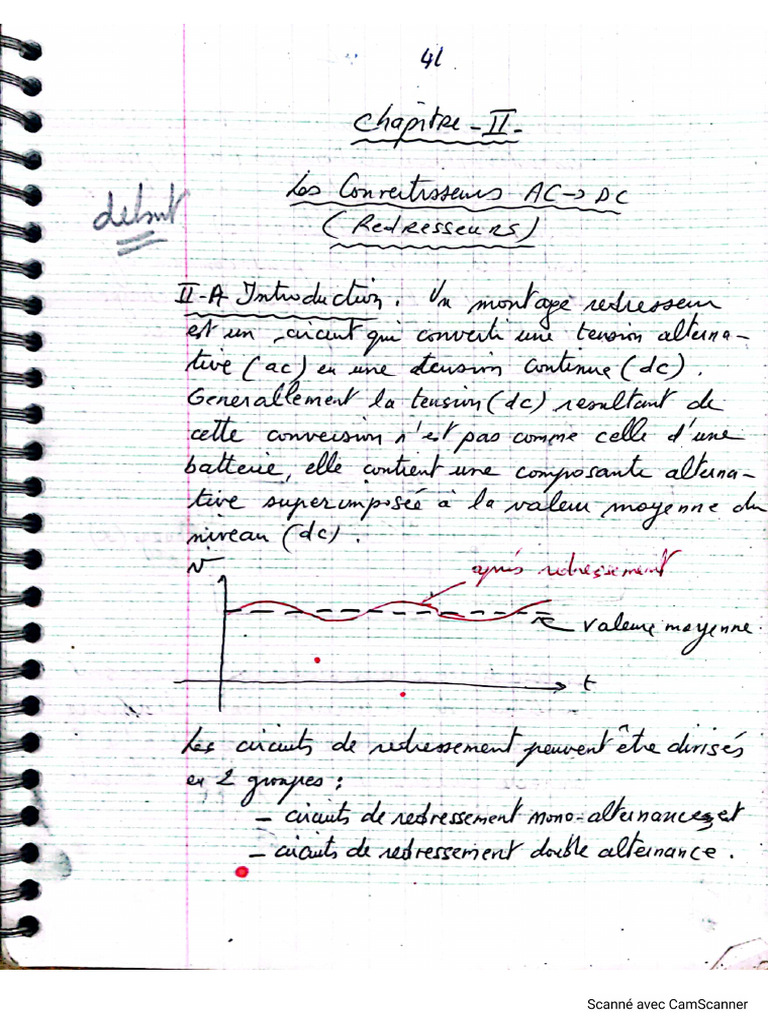 41
Chapitre -II-
Les Convertisseurs AC→DC
debut
(Redresseurs)
II-A Introduction. Un montage redresseur
est un circuit qui converti une tension alterna-
tive (ac) en une tension continue (dc).
Generallement la tension (dc) resultant de
cette conversion n'est pas comme celle d'une
batterie, elle contient une composante alterna-
tive superimposée à la valeur moyenne du
niveau (dc).
v
après redressement
valeure moyenne.
t
Les circuits de redressement peuvent être divisés
en 2 groupes :
- circuits de redressement mono-alternances, et
- circuits de redressement double alternance.
Scanné avec CamScanner